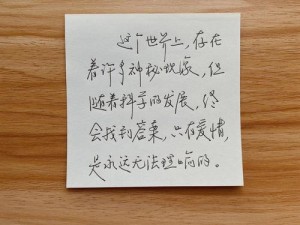 这个世界上，存在
着许多神秘现象，但
随着科学的发展，终
会找到答案，只有爱情，
是永远无法理喻的。